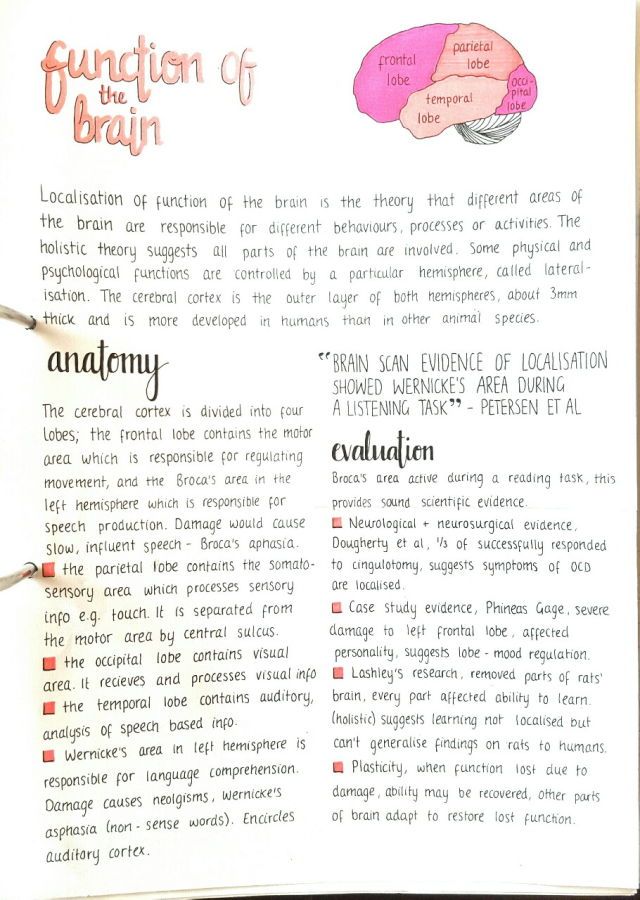 function of
the
brain
frontal
lobe
parietal
lobe
temporal
lobe
occi-
pital
lobe
Localisation of function of the brain is the theory that different areas of
the brain are responsible for different behaviours, processes or activities. The
holistic theory suggests all parts of the brain are involved. Some physical and
psychological functions are controlled by a particular hemisphere, called lateral-
isation. The cerebral cortex is the outer layer of both hemispheres, about 3mm
thick and is more developed in humans than in other animal species.
anatomy
The cerebral cortex is divided into four
lobes; the frontal lobe contains the motor
area which is responsible for regulating
movement, and the Broca's area in the
left hemisphere which is responsible for
speech production. Damage would cause
slow, influent speech - Broca's aphasia.
the parietal lobe contains the somato-
sensory area which processes sensory
info e.g. touch. It is separated from
the motor area by central sulcus.
the occipital lobe contains visual
area. It recieves and processes visual info
the temporal lobe contains auditory,
analysis of speech based info.
Wernicke's area in left hemisphere is
responsible for language comprehension.
Damage causes neolgisms, Wernicke's
asphasia (non-sense words). Encircles
auditory cortex.
"BRAIN SCAN EVIDENCE OF LOCALISATION
SHOWED WERNICKE'S AREA DURING
A LISTENING TASK" - PETERSEN ET AL
evaluation
Broca's area active during a reading task, this
provides sound scientific evidence.
Neurological + neurosurgical evidence,
Dougherty et al, 1/3 of successfully responded
to cingulotomy, suggests symptoms of OCD
are localised.
Case study evidence, Phineas Gage, severe
damage to left frontal lobe, affected
personality, suggests lobe - mood regulation.
Lashley's research, removed parts of rats'
brain, every part affected ability to learn.
(holistic) suggests learning not localised but
can't generalise findings on rats to humans.
Plasticity, when function lost due to
damage, ability may be recovered, other parts
of brain adapt to restore lost function.